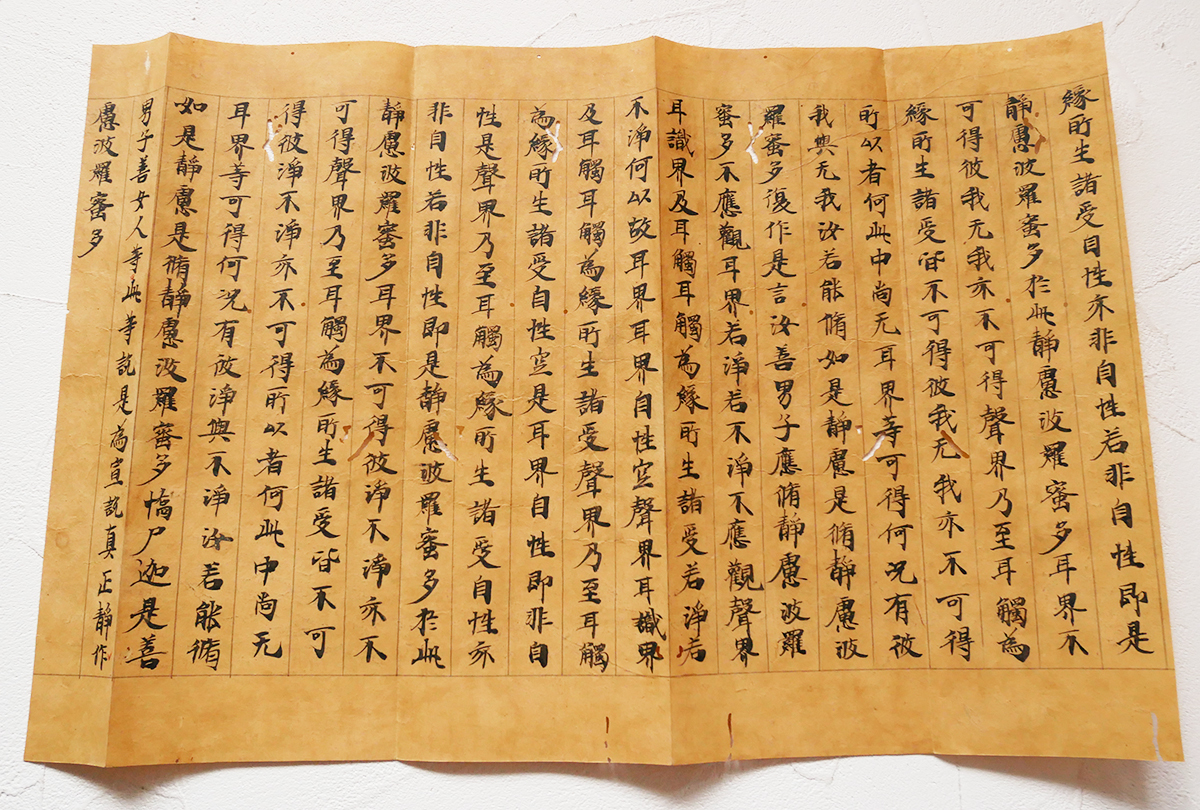 緣所生諸受自性亦非自性若非自性即是
靜慮波羅蜜多於此靜慮波羅蜜多耳界不
可得彼我无我亦不可得聲界乃至耳觸為
緣所生諸受皆不可得彼我无我亦不可得
所以者何此中尚无耳界等可得何況有彼
我與无我汝若能脩如是靜慮是脩靜慮波
羅蜜多復作是言汝善男子應脩靜慮波羅
蜜多不應觀耳界若淨若不淨不應觀聲界
耳識界及耳觸耳觸為緣所生諸受若淨若
不淨何以故耳界耳界自性空聲界耳識界
及耳觸耳觸為緣所生諸受聲界乃至耳觸
為緣所生諸受自性空是耳界自性即非自
性是聲界乃至耳觸為緣所生諸受自性亦
非自性若非自性即是靜慮波羅蜜多於此
靜慮波羅蜜多耳界不可得彼淨不淨亦不
可得聲界乃至耳觸為緣所生諸受皆不可
得彼淨不淨亦不可得所以者何此中尚无
耳界等可得何況有彼淨與不淨汝若能脩
如是靜慮是脩靜慮波羅蜜多憍尸迦是善
男子善女人等此等說是為宣說真正靜作
慮波羅蜜多